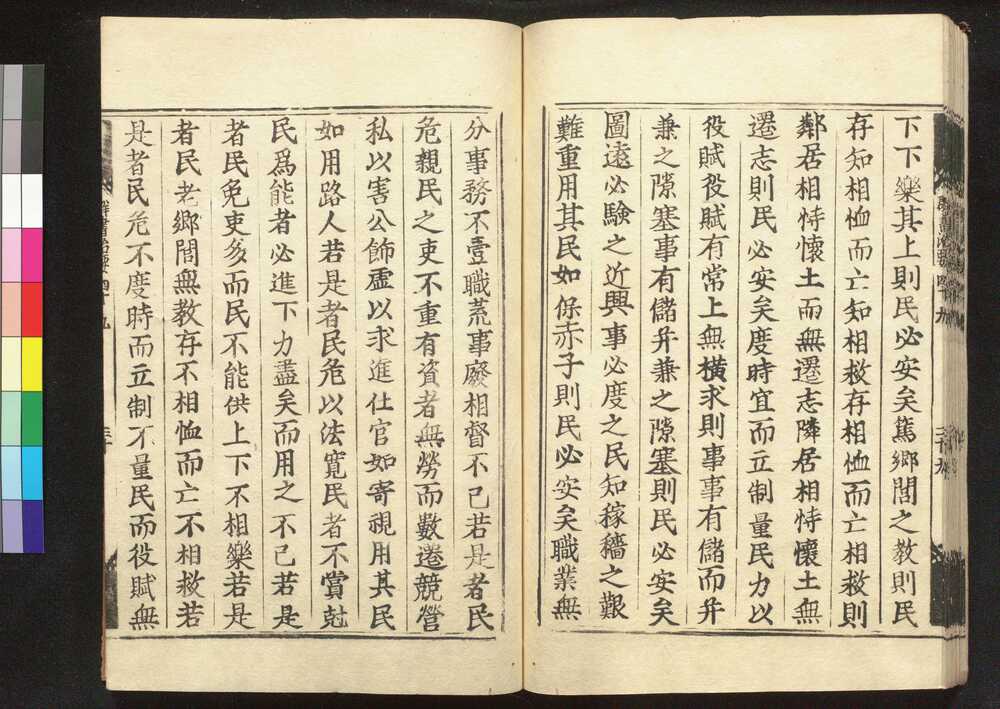 下下樂其上則民必安矣篤鄉閭之教則民
存知相恤而亡知相救存相恤而亡相救則
鄰居相恃懷土而無遷志隣居相恃懷土無
遷志則民必安矣度時宜而立制量民力以
役賦役賦有常上無橫求則事事有儲而并
兼之隙塞事有儲并兼之隙塞則民必安矣
圖遠必驗之近興事必度之民知稼穡之艱
難重用其民如保赤子則民必安矣職業無
分事務不壹職荒事廢相督不已若是者民
危親民之吏不重有資者無勞而數遷競營
私以害公飾虛以求進仕官如寄視用其民
如用路人若是者民危以法寬民者不賞尅
民爲能者必進下力盡矣而用之不已若是
者民免吏多而民不能供上下不相樂若是
者民老鄉閭無教存不相恤而亡不相救若
是者民危不度時而立制不量民而役賦無
群書治要四十九